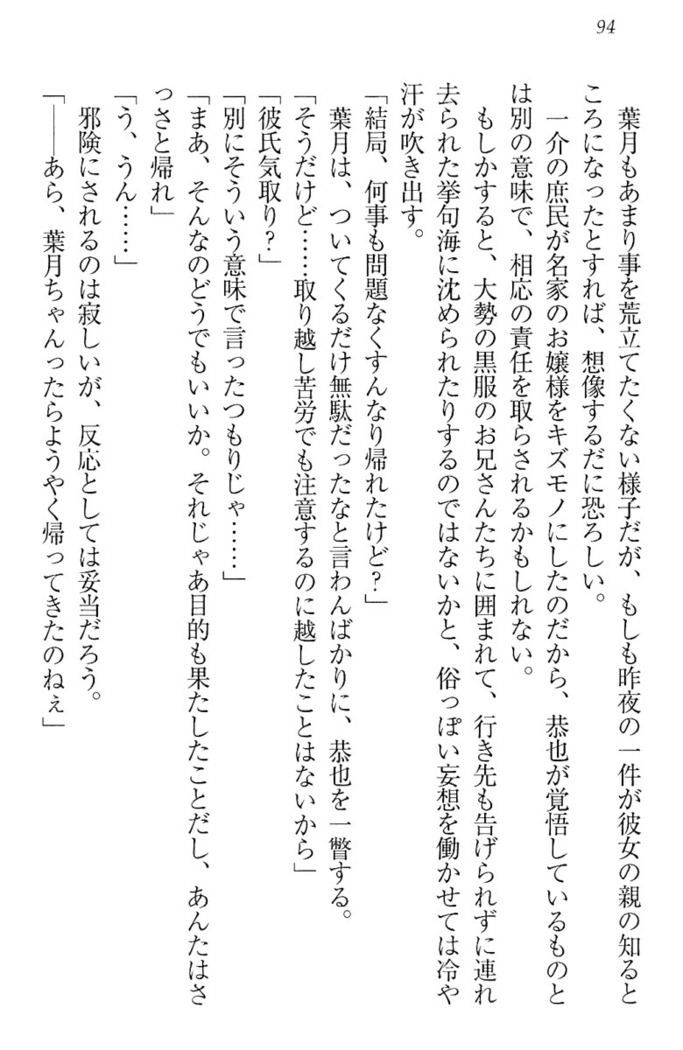 94
葉月もあまり事を荒立てたくない様子だが、もしも昨夜の一件が彼女の親の知ると
ころになったとすれば、想像するだに恐ろしい。
一介の庶民が名家のお嬢様をキズモノにしたのだから、恭也が覚悟しているものと
は別の意味で、相応の責任を取らされるかもしれない。
もしかすると、大勢の黒服のお兄さんたちに囲まれて、行き先も告げられずに連れ
去られた挙句海に沈められたりするのではないかと、俗っぽい妄想を働かせては冷や
汗が吹き出す。
「結局、何事も問題なくすんなり帰れたけど？」
葉月は、ついてくるだけ無駄だったなと言わんばかりに、恭也を一瞥する。
「そうだけど……取り越し苦労でも注意するのに越したことはないから」
「彼氏気取り？」
「別にそういう意味で言ったつもりじゃ……」
「まあ、そんなのどうでもいいか。それじゃあ目的も果たしたことだし、あんたはさ
っさと帰れ」
「う、うん……」
邪険にされるのは寂しいが、反応としては妥当だろう。
「――あら、葉月ちゃんったらようやく帰ってきたのねぇ」